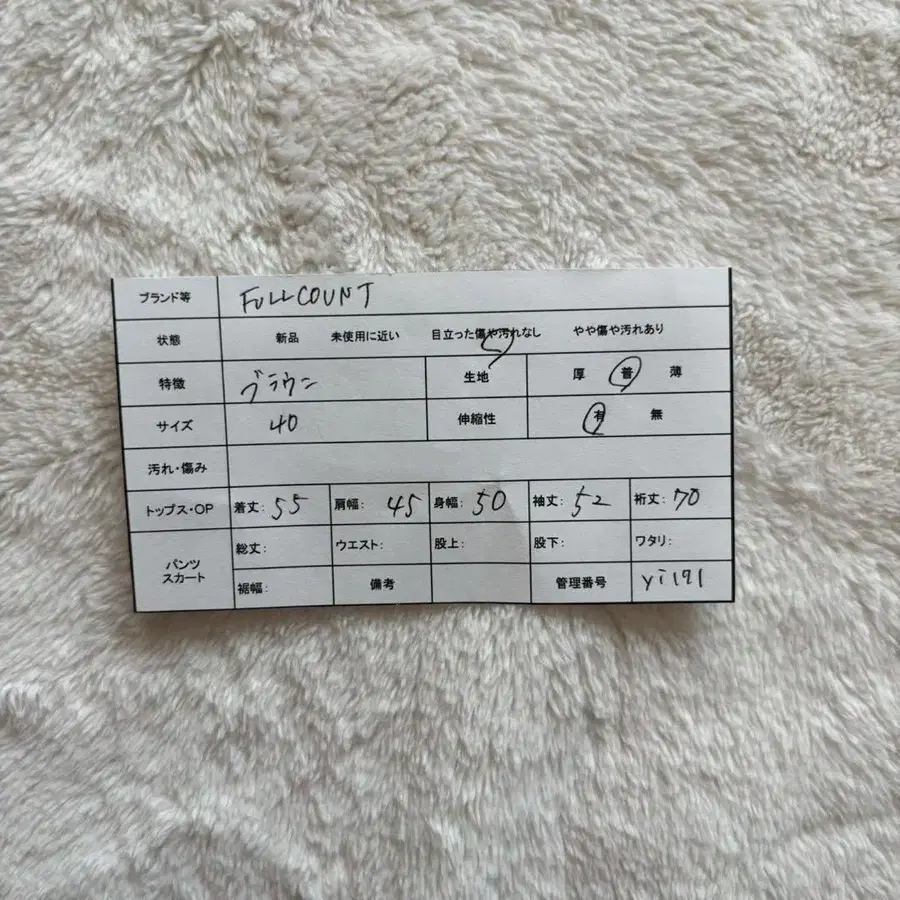 ブランド等 FULLCOUNT
状態 新品 未使用に近い 目立った傷や汚れなし やや傷や汚れあり
特徴 ブラウン 生地 厚 普 薄
サイズ 40 伸縮性 有 無
汚れ・傷み
トップス・OP 着丈: 55 肩幅: 45 身幅: 50 袖丈: 52 裄丈: 70
パンツ スカート 総丈: ウエスト: 股上: 股下: ワタリ:
裾幅: 備考 管理番号 yi191